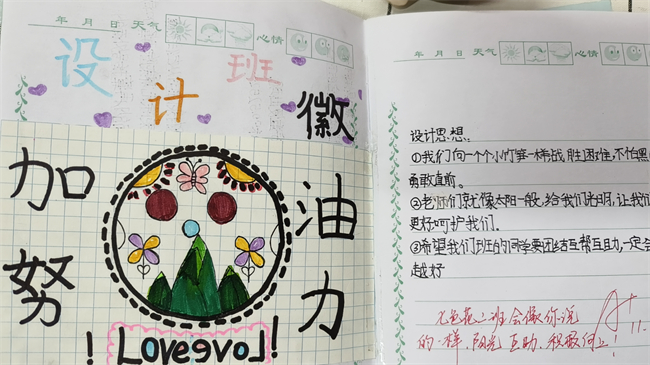 年 月 日 天气 心情
设计班徽
加油
努力
! Loveevol!
年 月 日 天气 心情
设计思想:
①我们向一个个小灯笼一样战胜困难,不怕黑
勇敢直前。
②老师们就像太阳一般,给我们光明,让我们
更好呵护我们。
③希望我们班的同学要团结互帮互助,一定会
越好
二班会像你说
的一样,阳光、互助、积极向上!
A+
11.